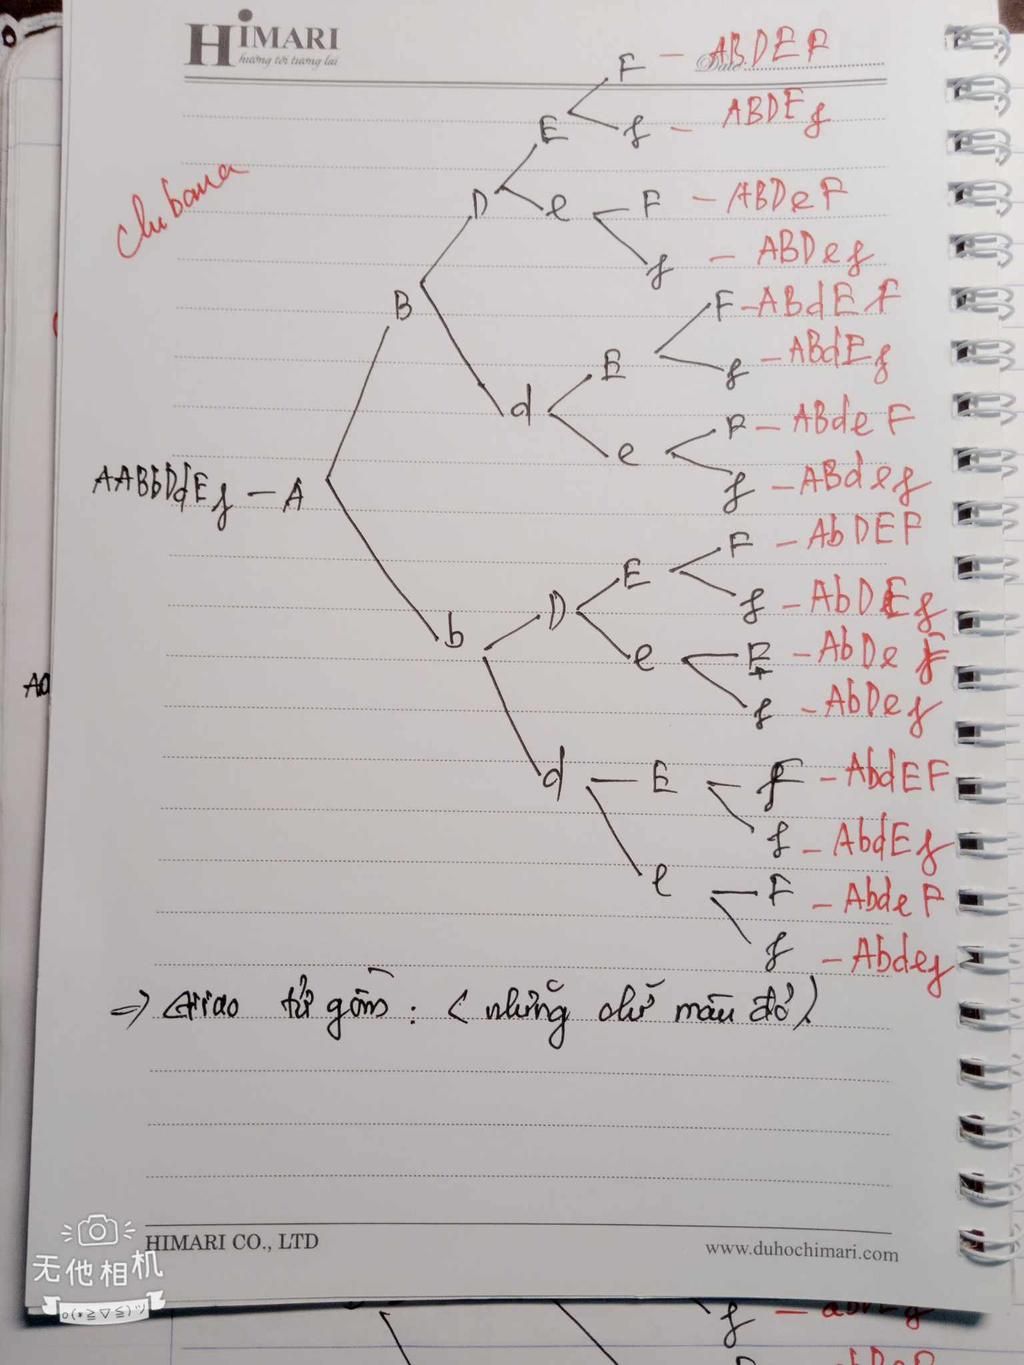 HIMARI
hướng tới tương lai
Date:
F - ABDEF
E f - ABDEf
chibana
D e F - ABDeF
f - ABDef
B F - ABdEF
E f - ABdEf
d F - ABdeF
e f - ABdef
AABbDdEf - A
F - AbDEF
E f - AbDEf
b D e F - AbDeF
f - AbDef
d E F - AbdEF
f - AbdEf
e F - AbdeF
f - Abdef
=> Giao tử gồm: (những chữ màu đỏ)
HIMARI CO., LTD
www.duhochimari.com
无他相机